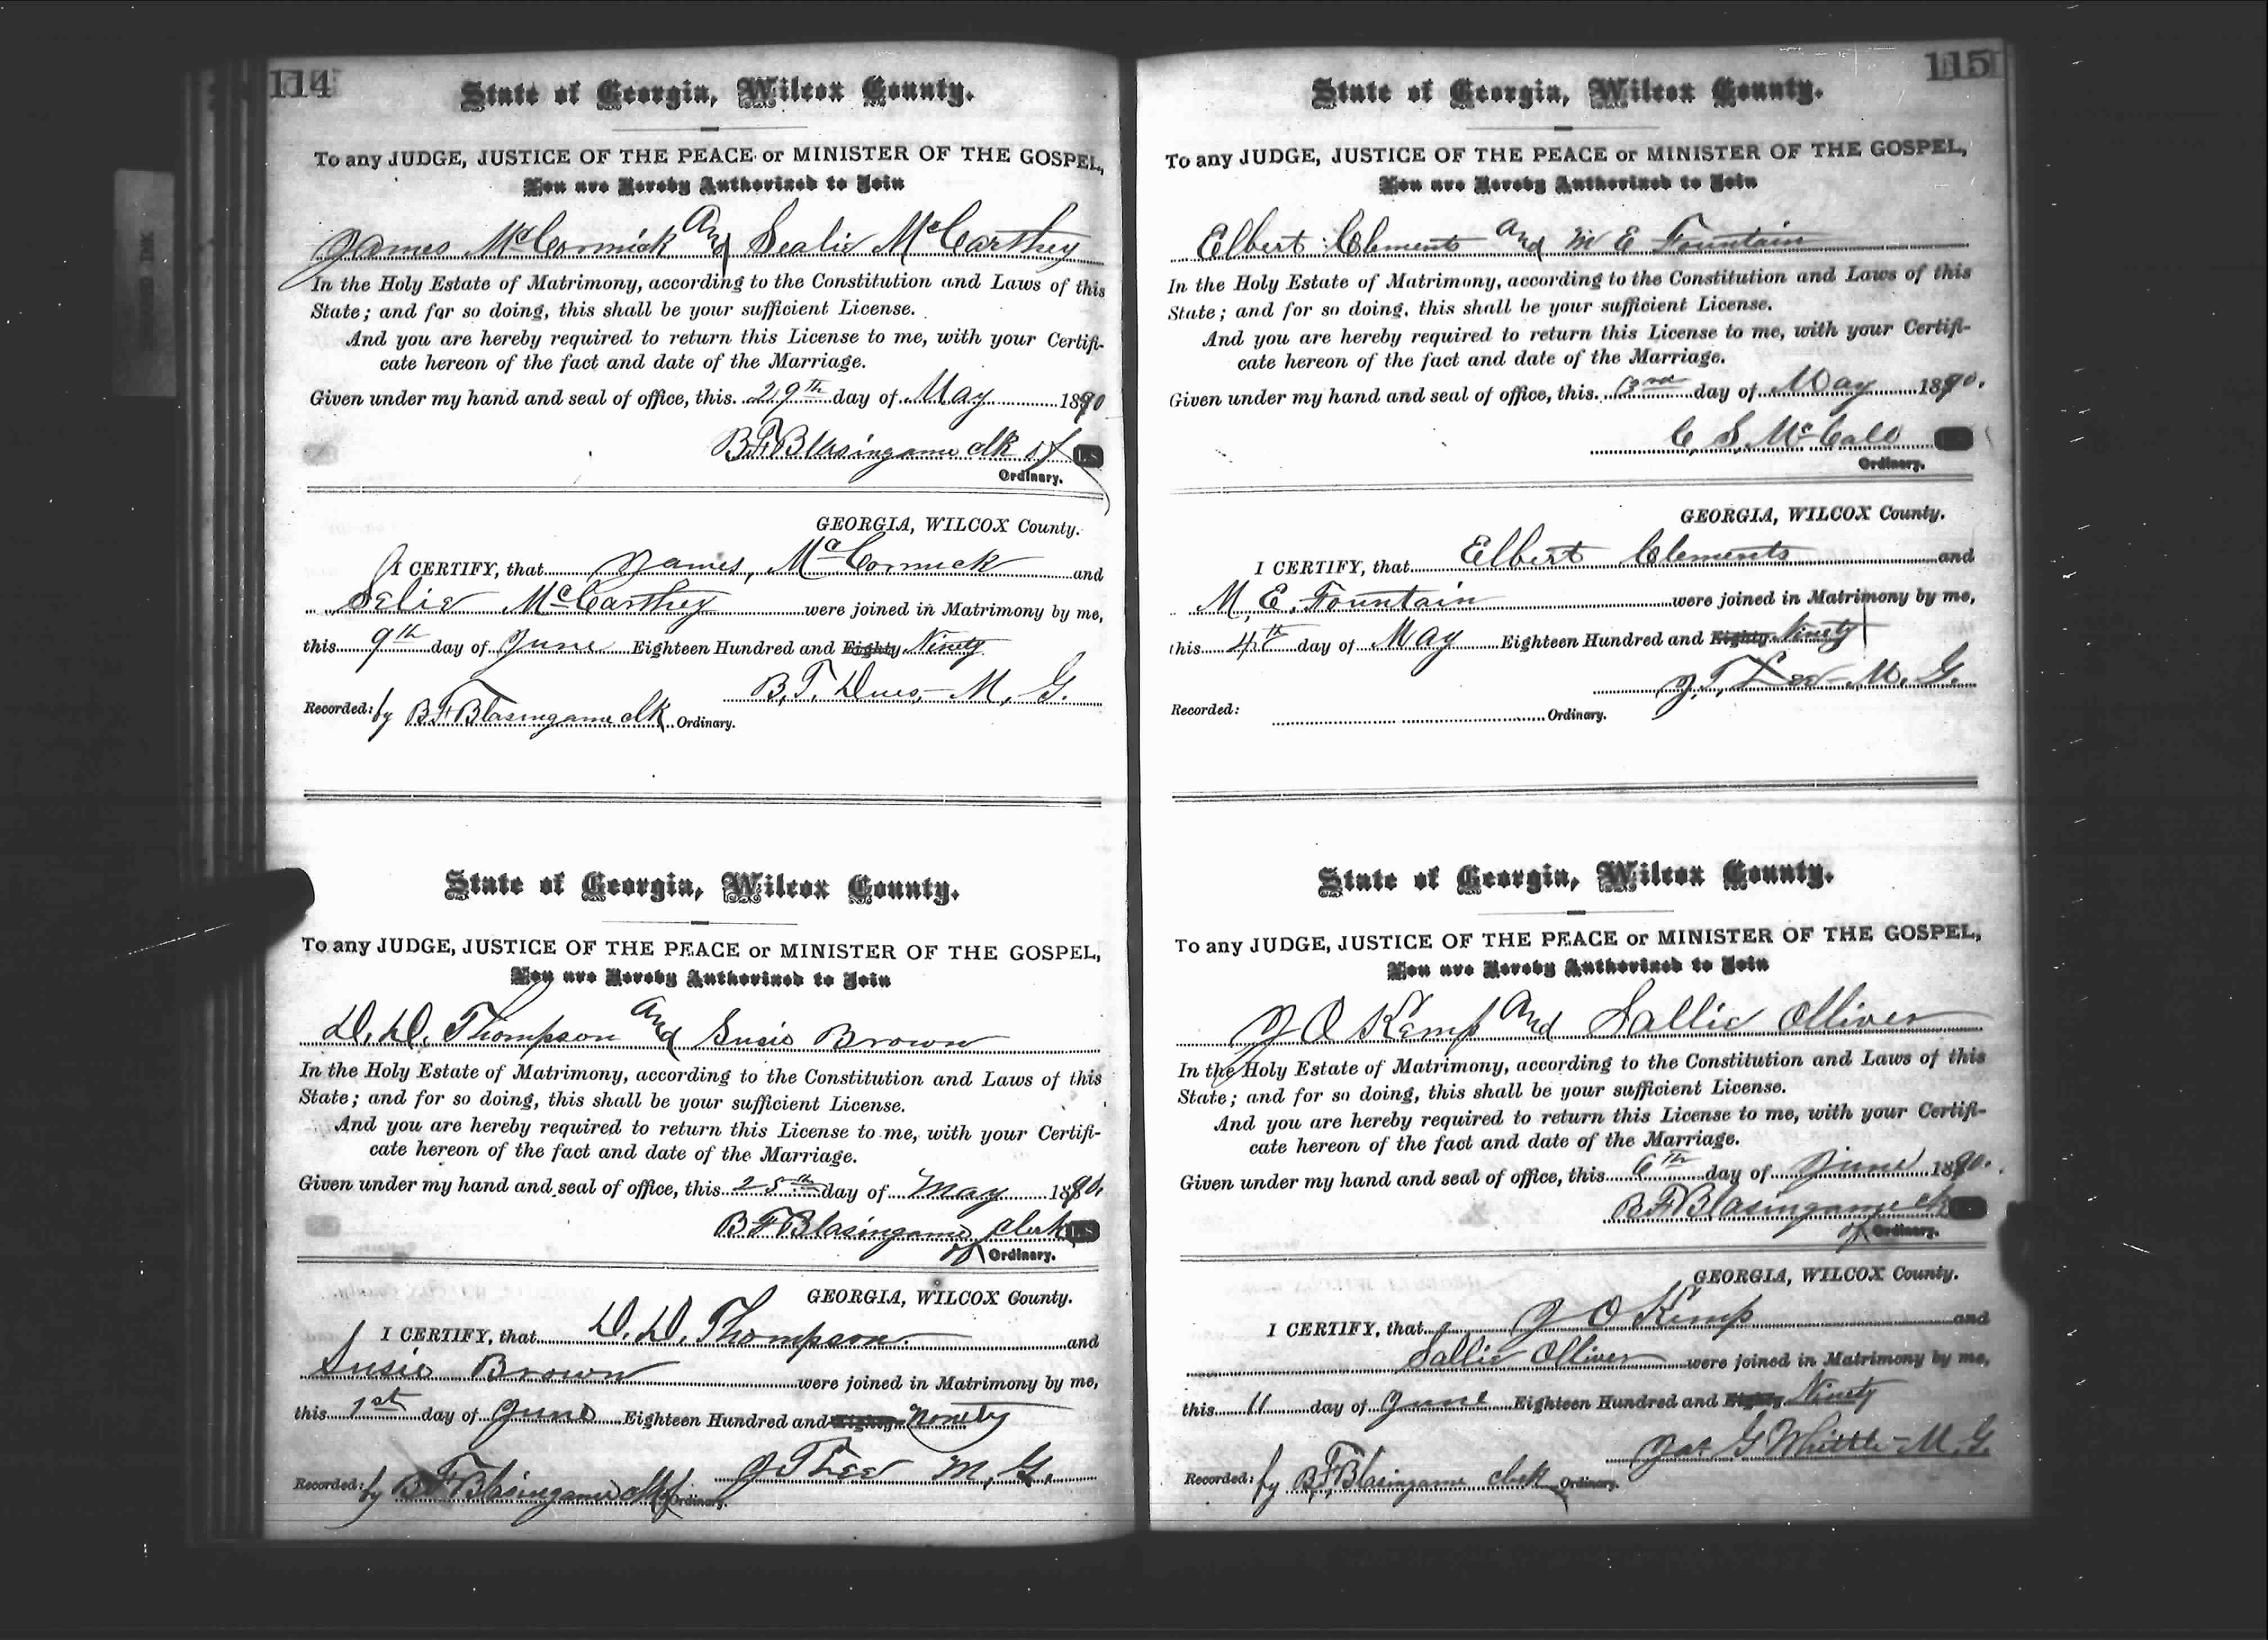 114
State of Georgia, Wilcox County.
To any JUDGE, JUSTICE OF THE PEACE or MINISTER OF THE GOSPEL,
You are Hereby Authorized to Join
James McCormick And Sealie McCarthey
In the Holy Estate of Matrimony, according to the Constitution and Laws of this
State; and for so doing, this shall be your sufficient License.
And you are hereby required to return this License to me, with your Certifi-
cate hereon of the fact and date of the Marriage.
Given under my hand and seal of office, this 29th day of May 1890
B.F. Blasingame clk of LS
Ordinary.
GEORGIA, WILCOX County.
I CERTIFY, that James, McCormick and
Selie McCarthey were joined in Matrimony by me,
this 9th day of June Eighteen Hundred and Eighty Ninety
B. T. M. G.
Recorded: by B.F. Blasingame clk Ordinary.
State of Georgia, Wilcox County.
To any JUDGE, JUSTICE OF THE PEACE or MINISTER OF THE GOSPEL,
You are Hereby Authorized to Join
D. D. Thompson And Susie Brown
In the Holy Estate of Matrimony, according to the Constitution and Laws of this
State; and for so doing, this shall be your sufficient License.
And you are hereby required to return this License to me, with your Certifi-
cate hereon of the fact and date of the Marriage.
Given under my hand and seal of office, this 25th day of May 1890.
B F Blasingame clerk LS
of Ordinary.
GEORGIA, WILCOX County.
I CERTIFY, that D. D. Thompson and
Susie Brown were joined in Matrimony by me,
this 1st day of June Eighteen Hundred and Eighty
J T Lee M. G.
Recorded: by B F Blasingame clk of Ordinary.
115
State of Georgia, Wilcox County.
To any JUDGE, JUSTICE OF THE PEACE or MINISTER OF THE GOSPEL,
You are Hereby Authorized to Join
Elbert Clements And M E Fountain
In the Holy Estate of Matrimony, according to the Constitution and Laws of this
State; and for so doing, this shall be your sufficient License.
And you are hereby required to return this License to me, with your Certifi-
cate hereon of the fact and date of the Marriage.
Given under my hand and seal of office, this 3rd day of May 1890.
C. S. McCall
Ordinary.
GEORGIA, WILCOX County.
I CERTIFY, that Elbert Clements and
M. E. Fountain were joined in Matrimony by me,
this 4th day of May Eighteen Hundred and Eighty Ninety
J. T. Lee - M. G.
Recorded: Ordinary.
State of Georgia, Wilcox County.
To any JUDGE, JUSTICE OF THE PEACE or MINISTER OF THE GOSPEL,
You are Hereby Authorized to Join
J O Kemp And Sallie Olliver
In the Holy Estate of Matrimony, according to the Constitution and Laws of this
State; and for so doing, this shall be your sufficient License.
And you are hereby required to return this License to me, with your Certifi-
cate hereon of the fact and date of the Marriage.
Given under my hand and seal of office, this 6th day of June 1890.
B F Blasingame clk
of Ordinary.
GEORGIA, WILCOX County.
I CERTIFY, that J O Kemp and
Sallie Olliver were joined in Matrimony by me,
this 11 day of June Eighteen Hundred and Eighty Ninety
Jas G Whittle - M. G.
Recorded: by B.F. Blasingame clerk Ordinary.